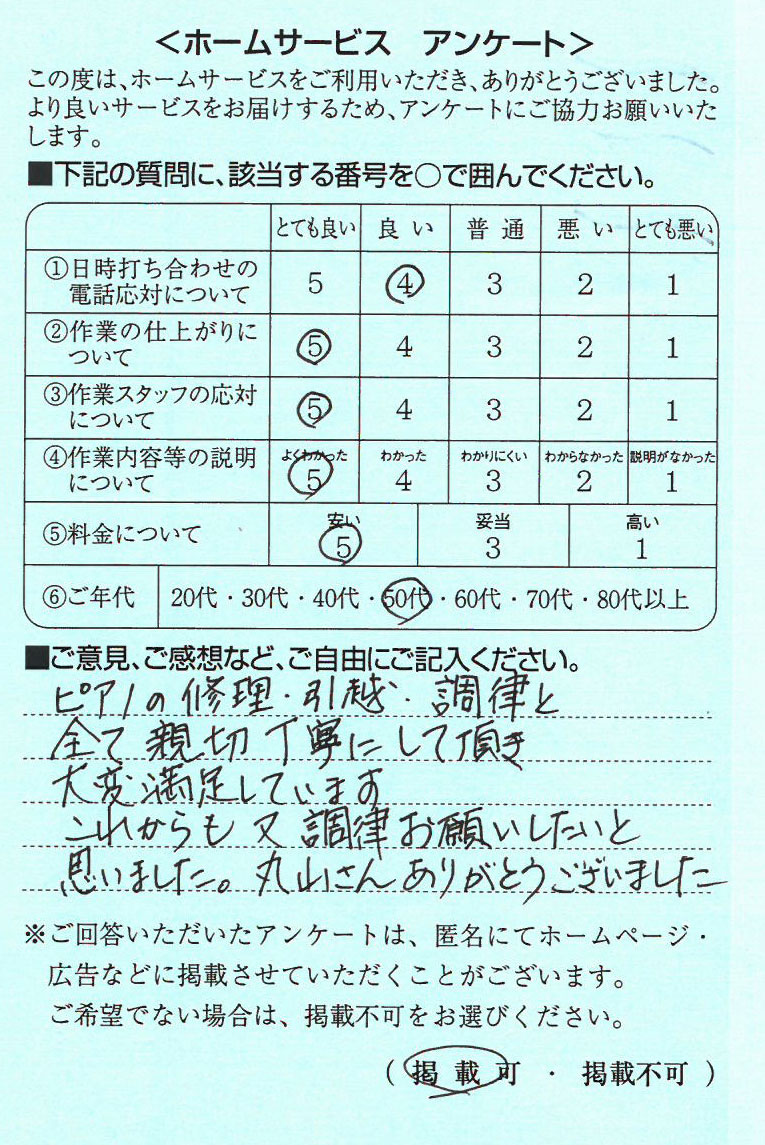 ＜ホームサービス　アンケート＞
この度は、ホームサービスをご利用いただき、ありがとうございました。
より良いサービスをお届けするため、アンケートにご協力お願いいた
します。
■下記の質問に、該当する番号を○で囲んでください。
とても良い 良い 普通 悪い とても悪い
①日時打ち合わせの
電話応対について 5 4 3 2 1
②作業の仕上がりに
ついて 5 4 3 2 1
③作業スタッフの応対
について 5 4 3 2 1
④作業内容等の説明 よくわかった わかった わかりにくい わからなかった 説明がなかった
について 5 4 3 2 1
⑤料金について 安い 妥当 高い
5 3 1
⑥ご年代 20代・30代・40代・50代・60代・70代・80代以上
■ご意見、ご感想など、ご自由にご記入ください。
ピアノの修理・引越・調律と
全て親切丁寧にして頂き
大変満足しています
これからも又調律お願いしたいと
思いました。丸山さんありがとうございました
※ご回答いただいたアンケートは、匿名にてホームページ・
広告などに掲載させていただくことがございます。
ご希望でない場合は、掲載不可をお選びください。
（ 掲載可 ・ 掲載不可 ）